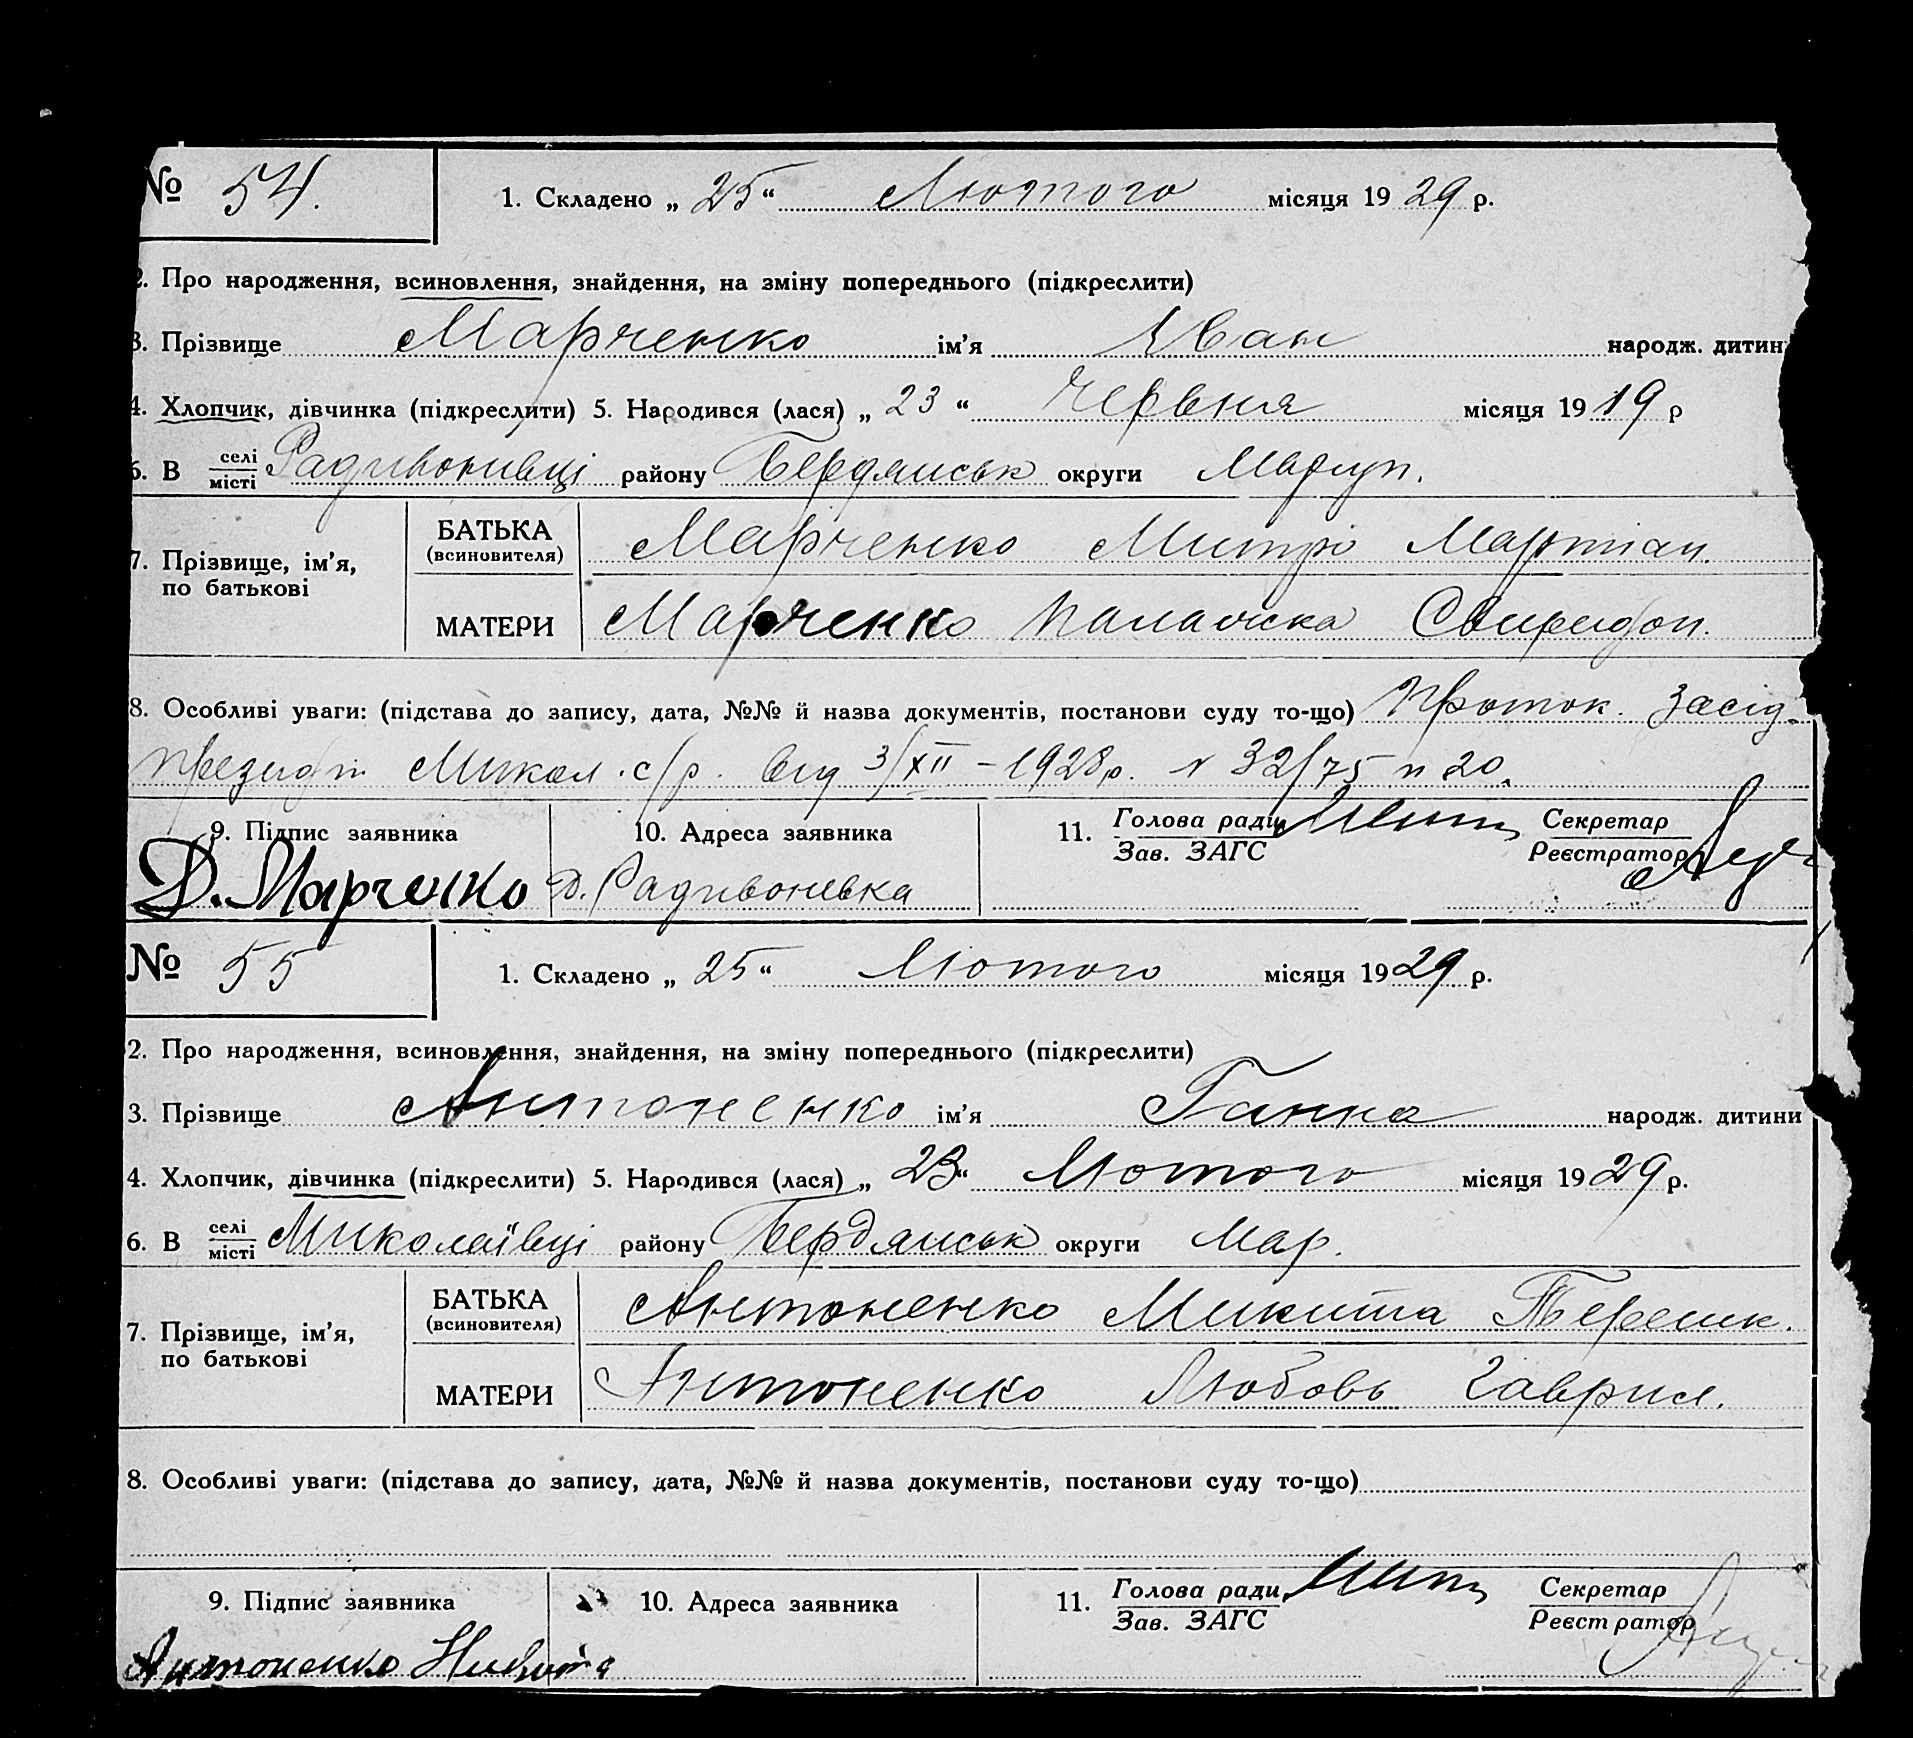 № 54. 1. Складено „ 25 “ Лютого місяця 19 29 р.
2. Про народження, всиновлення, знайдення, на зміну попереднього (підкреслити)
3. Прізвище Марченко ім’я Іван народж. дитин
4. Хлопчик, дівчинка (підкреслити) 5. Народився (лася) „ 23 “ Червня місяця 19 19 р
6. В селі/місті Радивонивці району Бердянськ округи Маріуп.
7. Прізвище, ім’я, по батькові
БАТЬКА (всиновителя) Марченко Митрі Мартіан.
МАТЕРИ Марченко Палашка Свиридон.
8. Особливі уваги: (підстава до запису, дата, №№ й назва документів, постанови суду то-що) Проток. засід.
президії Микол. с/р. від 3/XII – 1928р. № 32/75 п 20.
9. Підпис заявника 10. Адреса заявника 11. Голова ради Секретар
Зав. ЗАГС Реєстратор
Д. Марченко д. Радивоневка
№ 55 1. Складено „ 25 “ Лютого місяця 19 29 р.
2. Про народження, всиновлення, знайдення, на зміну попереднього (підкреслити)
3. Прізвище Антоненко ім’я Ганна народж. дитини
4. Хлопчик, дівчинка (підкреслити) 5. Народився (лася) „ 23 “ Лютого місяця 19 29 р.
6. В селі/місті Миколаївці району Бердянськ округи Мар.
7. Прізвище, ім’я, по батькові
БАТЬКА (всиновителя) Антоненко Микита Терешк.
МАТЕРИ Антоненко Любовь Гаврил.
8. Особливі уваги: (підстава до запису, дата, №№ й назва документів, постанови суду то-що)
9. Підпис заявника 10. Адреса заявника 11. Голова ради Секретар
Зав. ЗАГС Реєстратор
Антоненко Никита